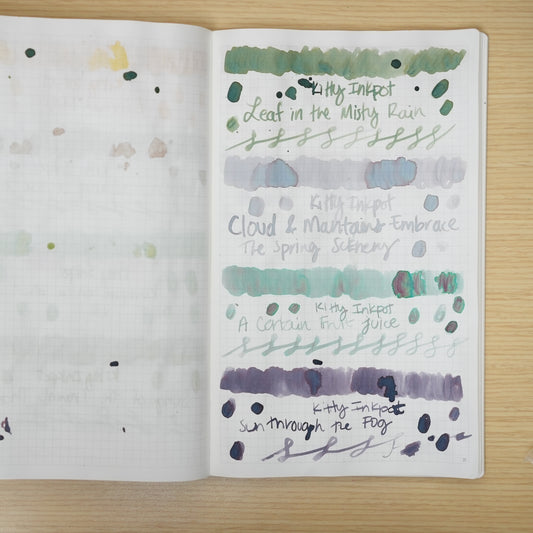 Kitty Inkpot
Leaf in the Misty Rain
Kitty Inkpot
Cloud & Mantains Embrace
The Spring Scknery
Kitty Inkpot
A Certain Fruit Juice
Kitty Inkpot
Sun through the Fog